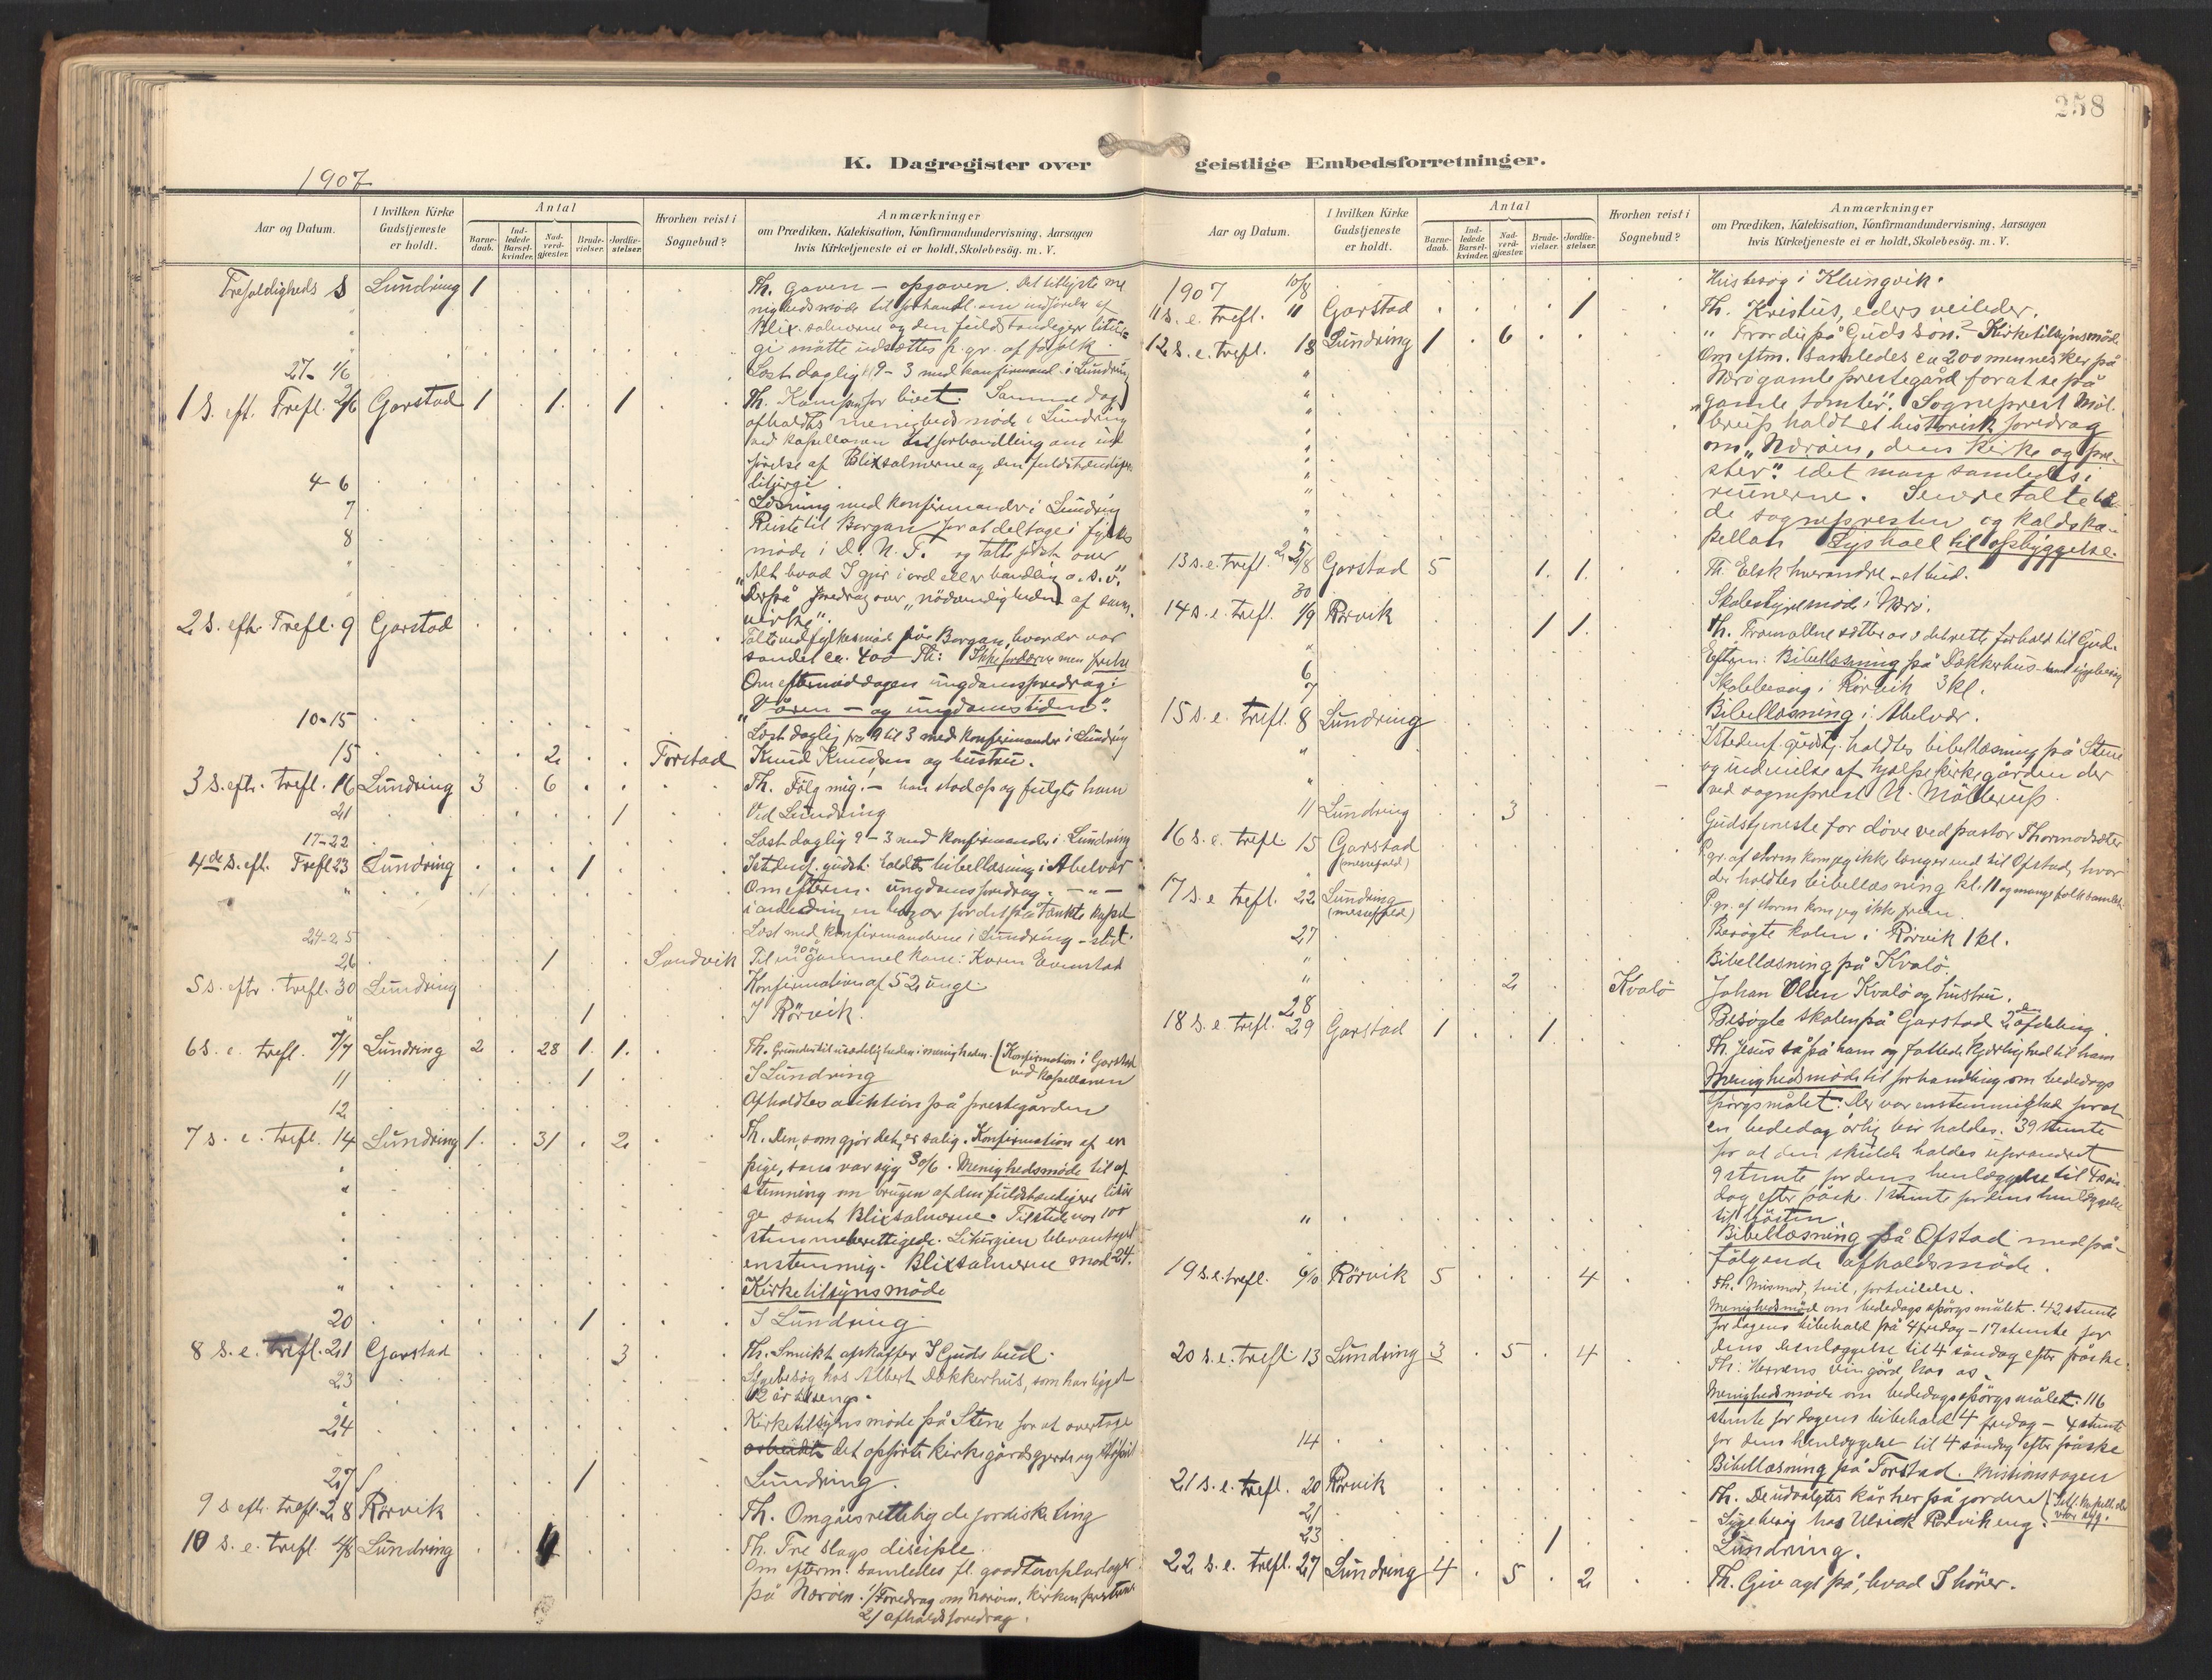 258
K. Dagregister over geistlige Embedsforretninger.
1907
Aar og Datum.
I hvilken Kirke Gudstjeneste er holdt.
Antal
Barnedaab.
Indledede Barselkvinder.
Nadverdgjæster.
Brudevielser.
Jordfæstelser.
Hvorhen reist i Sognebud?
Anmærkninger
om Prædiken, Katekisation, Konfirmandundervisning, Aarsagen
hvis Kirketjeneste ei er holdt, Skolebesög. m. V.
Trefoldigheds s Lundring 1 Th. Gaven – opgaven. Det tillyste me
nighedsmöde til forhandl. om indförelse af
Blix. salmerne og den fuldstændigere litur
gi måtte udsættes p. gr. af fåfolk.
27- 1/6 Læst daglig 9-3 med konfirmand. i Lundring
1 s. eft. Trefl. 2/6 Garstad 1 1. 1 Th. Kampen for livet. Samme dag
afholdtes menighedsmöde i Lundring
ved kapellanen til forhandling om ind
förelse af Blixsalmerne og den fuldstændigere
liturgi.
4-6 Læsning med konfirmander i Lundring
7 Reiste til Borgan for at deltage i fylkes
8 möde i D. N. T. og talte sidst over
"Alt hvad I gjör i ord eller handling o. s. v."
Derpå foredrag over "nödvendigheden af sam-
virke".
2 s. eft. Trefl. 9 Garstad Talte ved fylkesmöde på Borgan, hvor der var
samlet ca. 400 Th: Ikke fordærve men frelse
Om eftermiddagen ungdomsforedrag:
"Våren – og ungdomstiden".
10-15 Læst daglig fra 9 til 3 med konfirmander i Lundring
15 2 Forstad Knud Knudsen og hustru.
3 s. eft. trefl. 16 Lundring 3 6 Th. Fölg mig! – han stod op og fulgte ham
21 1 Ved Lundring
17-22 Læst daglig 9-3 med konfirmander i Lundring
4de s. eft. Trefl 23 Lundring 1 Istedenf. gudst. holdtes bibellæsning i Abelvær
Om efterm. ungdomsforedrag. – " –
i anledning en bazar for det påtænkte kapel
24-25 Læst med konfirmanderne i Lundring – slut.
26 1 Sandvik Til en 90 år gammel kone: Karen Evenstad
5 s. eftr. trefl. 30 Lundring Konfirmation af 52 unge
" 1 I Rörvik.
6 s. e. trefl. 7/7 Lundring 2 28 1. 1. Th. Grunden til usædeligheden i menigheden. (Konfirmation i Garstad
ved kapellanen
11 1 I Lundring
12 Afholdtes auktion på prestegården
7 s. e. trefl. 14 Lundring 1. 31 2 Th. Den, som gjör det, er salig. Konfirmation af en
pige, som var syg 30/6. Menighedsmöde til af
stemning om brugen af den fuldstændigere litur
gi samt Blixsalmerne. Tilstede var 100
stemmeberettigede. Liturgien blev antaget
enstemmig. Blixsalmerne mod 24.
" Kirketilsynsmöde
20 1 I Lundring
8 s. e. trefl. 21 Garstad 3 Th. I Guds bud.
23 Sygebesög hos Albert Dåkkerhus, som har ligget
12 år tilsengs.
24 Kirketilsynsmöde på Stene for at overtage
det opförte kirkegårdsgjerde og
27 1 Lundring.
9 s. eft. trefl. 28 Rörvik Th. Omgåes rettelig de jordiske ting
10 s. e. trefl. 4/8 Lundring Th. Tre slags disciple.
Om efterm. samledes fl. goodtemplarloger
på Næröen. 1/ Foredrag om Næröen, kirken, presterne
2/ afholdsforedrag.
Aar og Datum.
I hvilken Kirke Gudstjeneste er holdt.
Antal
Barnedaab.
Indledede Barselkvinder.
Nadverdgjæster.
Brudevielser.
Jordfæstelser.
Hvorhen reist i Sognebud?
Anmærkninger
om Prædiken, Katekisation, Konfirmandundervisning, Aarsagen
hvis Kirketjeneste ei er holdt, Skolebesög. m. V.
1907 10/8 Husbesög i Klungvik.
11 s. e. trefl. 11 Garstad 1 Th. Kristus, eders veileder.
12 s. e. trefl. 18 Lundring 1 6 " Tror du på Guds sön? Kirketilsynsmöd.
Om eftm. samledes ca 200 mennesker på
Nærö gamle prestegård for at se på
"gamle tomter". Sogneprest Möl-
lerup holdt et historisk foredrag
om "Næröen, dens kirke og pre-
ster" idet man samledes i
ruinerne. Senere talte bå-
de sognepresten og kaldska-
pellan Lyshoel til opbyggelse.
13 s. e. trefl. 25/8 Garstad 5 1. 1. Th. Elsk hverandre – et bud.
30 Skolestyremöde i Nærö.
14 s. e. trefl. 1/9 Rörvik 1 1. Th. Troen alene sætter os i det rette forhold til Gud.
" Eftm: Bibellæsning på Dåkkerhus – samt sygebesög
6 Skolebesög i Rörvik 3 kl.
7 Bibellæsning i Abelvær.
15 s. e. trefl. 8 Lundring Istedenf. gudstj. holdtes bibellæsning på Stene
" og indvielse af hjælpekirkegården der
" ved sogneprest A. Möllerup.
11 Lundring 3 Gudstjeneste for döve ved pastor Thormodsæter
16 s. e. trefl 15 Garstad (messefald) P. gr. af storm kom jeg ikke længer end til Ofstad, hvor
der holdtes bibellæsning kl. 11 og mange folk samlet.
17 s. e trefl. 22 Lundring (messefald) P. gr. af storm kom jeg ikke frem.
27 Besögte skolen i Rörvik 1 kl.
" Bibellæsning på Kvalö.
" 2 Kvalö Johan Olsen Kvalö og hustru.
28 Besögte skolen på Garstad 2den afdeling.
18 s. e. trefl. 29 Garstad 1 1 Th. Jesus så på ham og fattede kjærlighed til ham
Menighedsmöde til forhandling om bededags
spörgsmålet. Der var enstemmighed for at
en bededag årlig bör holdes. 39 stemte
for at den skulde holdes uforandret
9 stemte for dens henlæggelse til 4 sön-
dag efter påske. 1 stemte for dens henlæggelse
til hösten
" Bibellæsning på Ofstad med på-
fölgende afholdsmöde.
19 s. e. trefl. 6/10 Rörvik 5 4 Th. Mismod, tvil, fortvilelse.
Menighedsmöde om bededagsspörgsmålet. 42 stemte
for dagens bibehold på 4 fredag – 17 stemte for
dens henlæggelse til 4 söndag efter påske.
20 s. e. trefl 13 Lundring 3 5 4 Th: Herrens vingård hos os.
Menighedsmöde om bededagsspörgsmålet: 116
stemte for dagens bibehold 4 fredag – 4 stemte
for dens henlæggelse til 4 söndag efter påske
14 Bibellæsning på Torstad. Missionssagen
21 s. e. trefl. 20 Rörvik Th. De udvalgtes kår her på jorden
21 Sygebesög hos Ulrick Rörvikeng.
23 1 Lundring.
22 s. e. trefl. 27 Lundring 4 5 2 Th. Giv agt på, hvad I hörer.